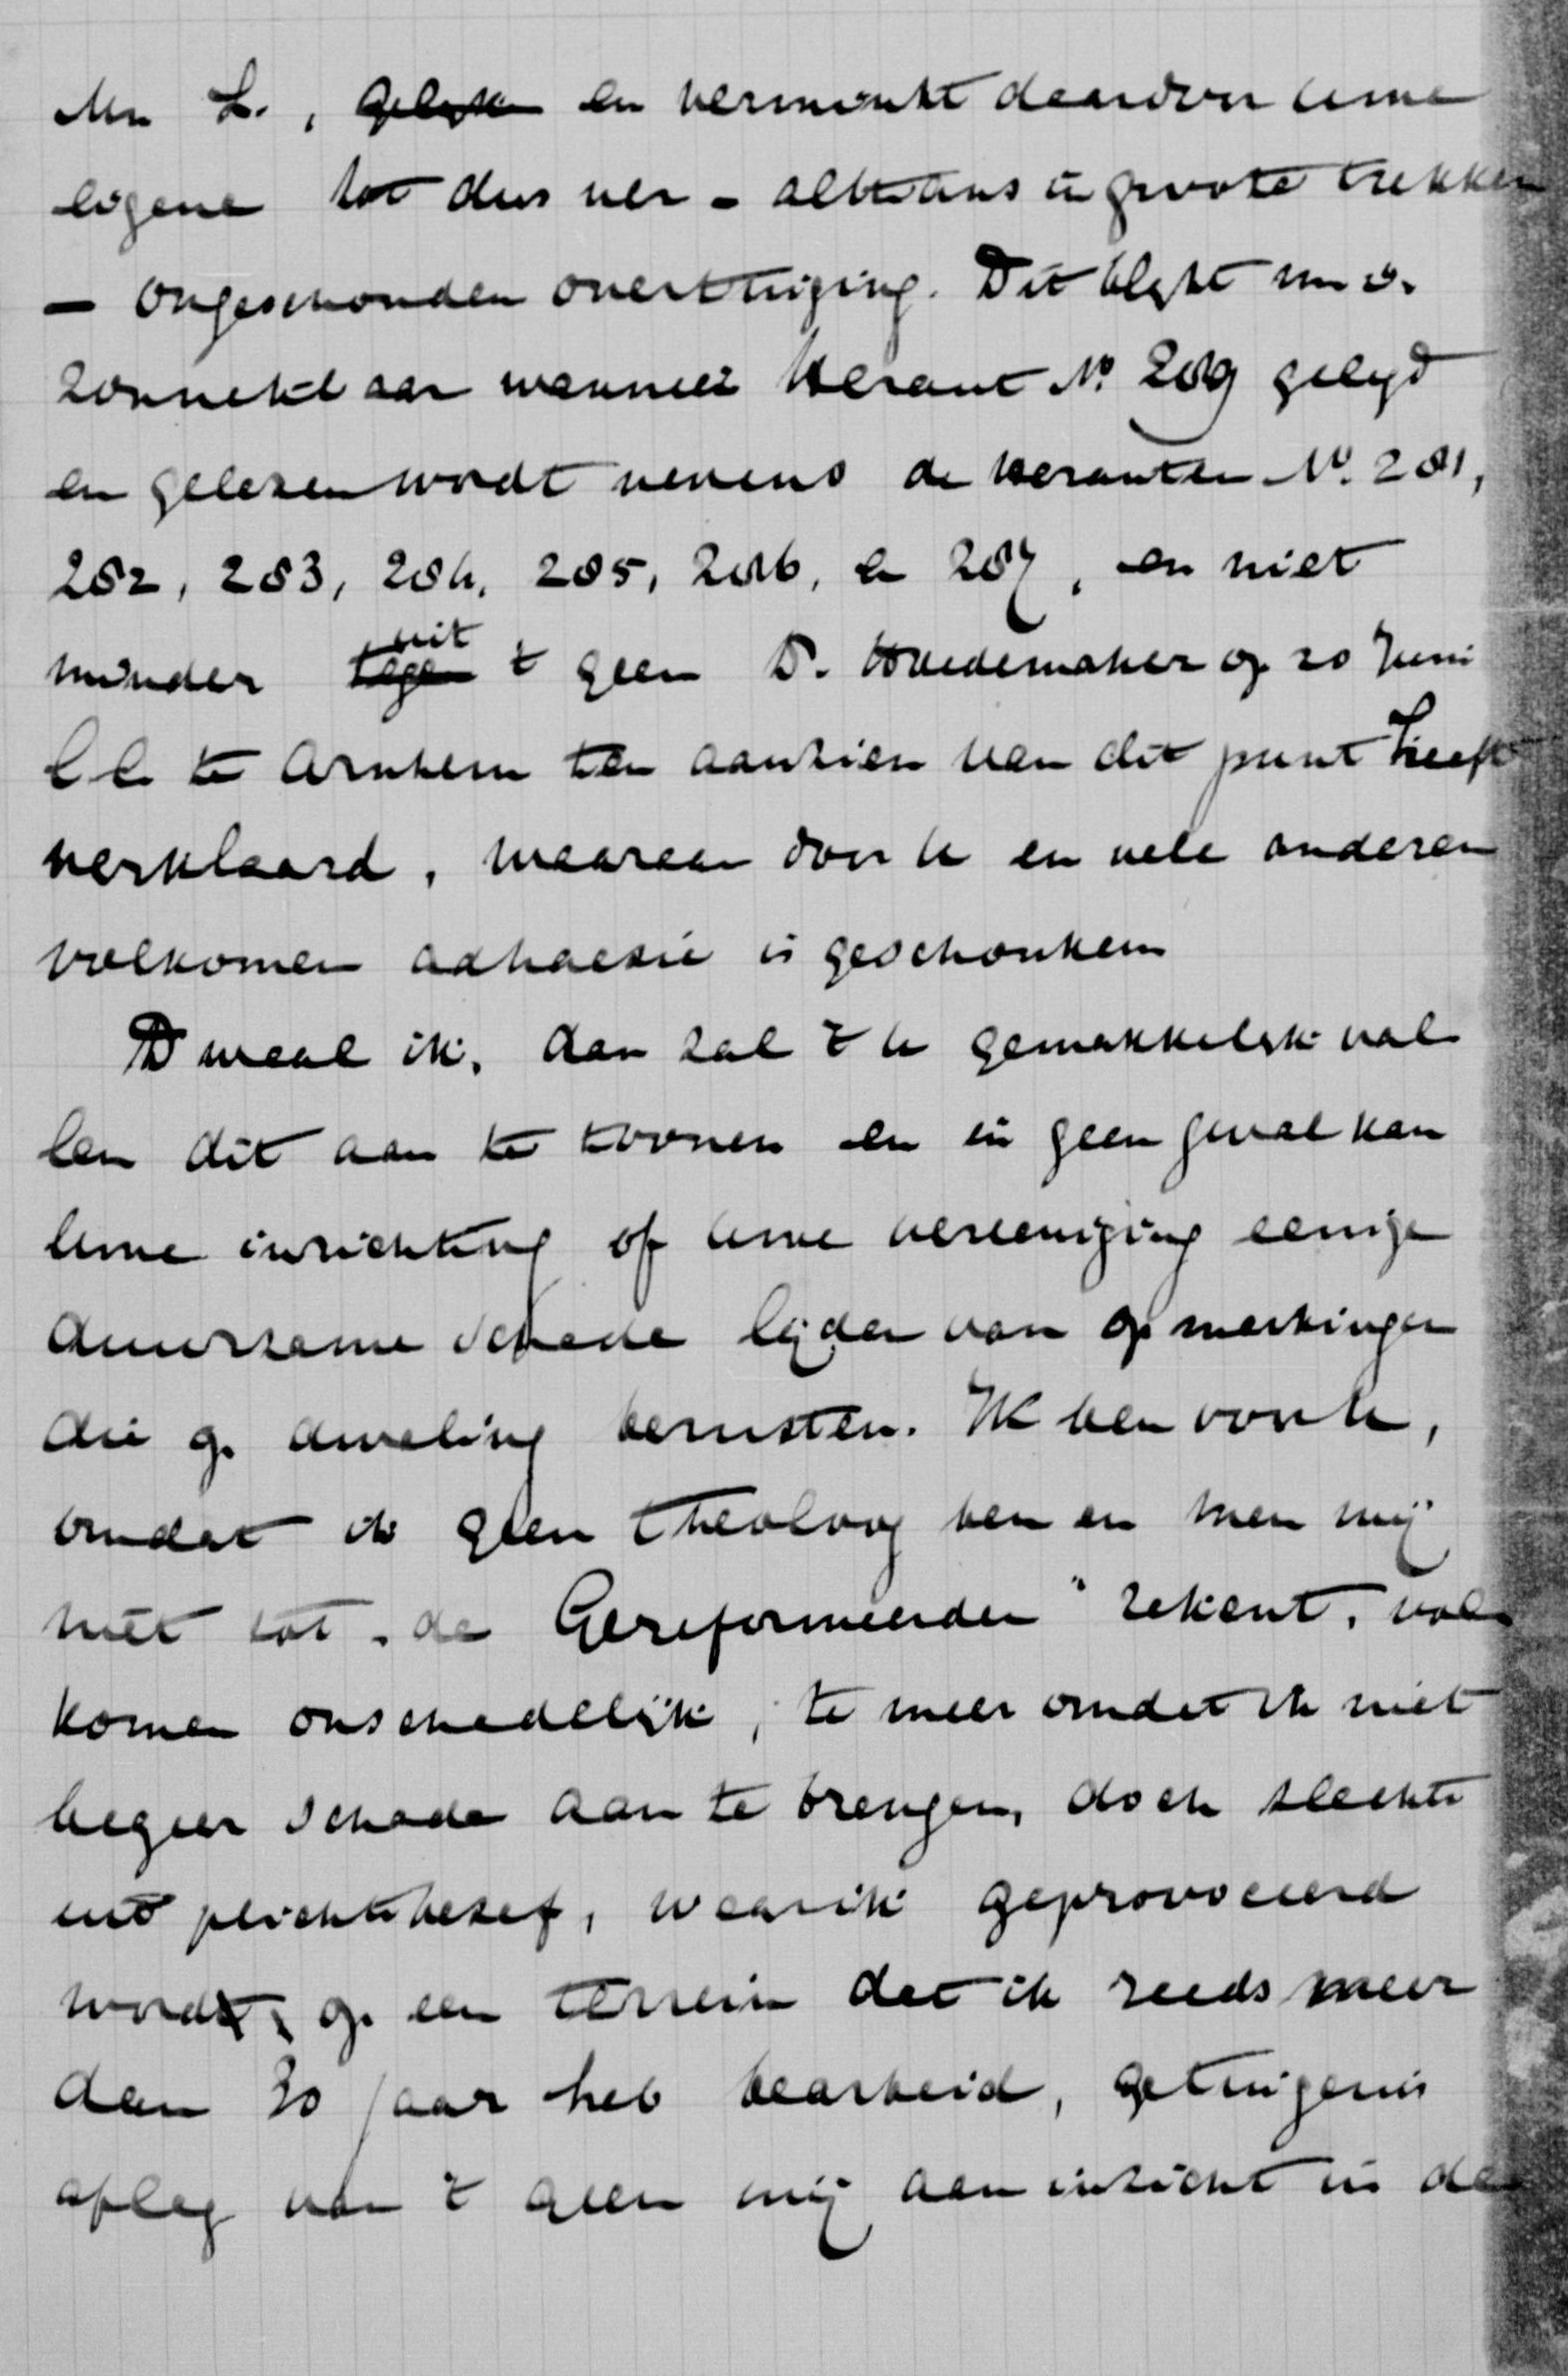 Mr L., en verminkt daardoor uwe
eigene tot dus ver - althans in groote trekken
- ongeschonden overtuiging. Dit blijkt m.i.
zonneklaar wanneer Heraut No 289 gelegd
en gelezen wordt nevens de Herauten No. 281,
282, 283, 284, 285, 286, en 287, en niet
minder uit 't geen Dr. Hoedemaker op 20 Juni
ll. te Arnhem ten aanzien van dit punt heeft
verklaard, waaraan door U en vele anderen
volkomen adhaesie is geschonken
Dwaal ik, dan zal 't U gemakkelijk val
len dit aan te toonen en in geen geval kan
uwe inrichting of uwe vereeniging eenige
duurzame schade lijden van opmerkingen
die op dwaling berusten. Ik ben voor U,
omdat ik geen theoloog ben en men mij
niet tot „de Gereformeerden" rekent, vol
komen onschadelijk, te meer omdat ik niet
begeer schade aan te brengen, doch slechts
uit plichtsbesef, waar ik geprovoceerd
word, op een terrein dat ik reeds meer
dan 30 jaar heb bearbeid, getuigenis
afleg van 't geen mij aan inzicht in de